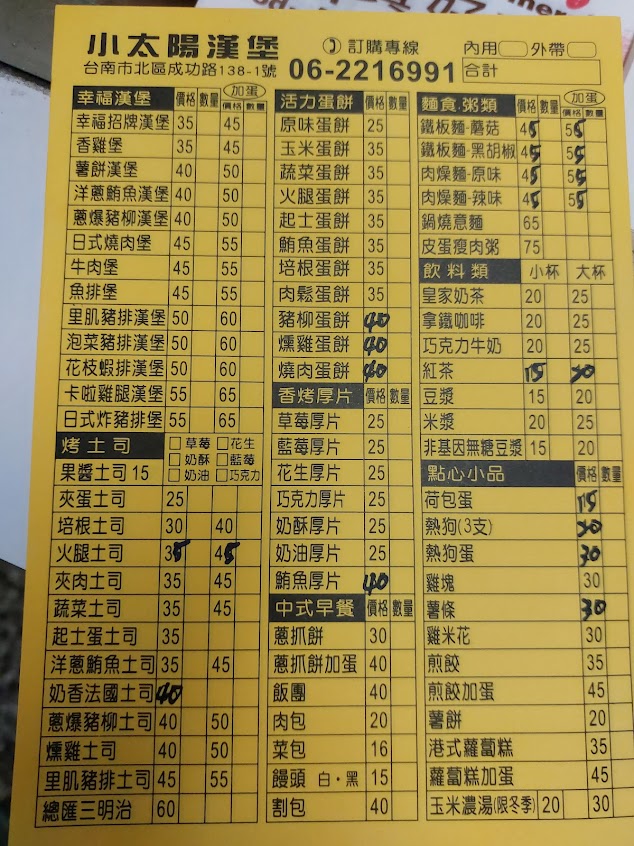 小太陽漢堡
訂購專線
台南市北區成功路138-1號
06-2216991
內用 外帶
合計
幸福漢堡 價格 數量 加蛋 價格 數量
幸福招牌漢堡 35 45
香雞堡 35 45
薯餅漢堡 40 50
洋蔥鮪魚漢堡 40 50
蔥爆豬柳漢堡 40 50
日式燒肉堡 45 55
牛肉堡 45 55
魚排堡 45 55
里肌豬排漢堡 50 60
泡菜豬排漢堡 50 60
花枝蝦排漢堡 50 60
卡啦雞腿漢堡 55 65
日式炸豬排堡 55 65
烤土司 草莓 花生
奶酥 藍莓
果醬土司 15 奶油 巧克力
夾蛋土司 25
培根土司 30 40
火腿土司 35 45
夾肉土司 35 45
蔬菜土司 35 45
起士蛋土司 35
洋蔥鮪魚土司 35 45
奶香法國土司 40
蔥爆豬柳土司 40 50
燻雞土司 40 50
里肌豬排土司 45 55
總匯三明治 60
活力蛋餅 價格 數量
原味蛋餅 25
玉米蛋餅 35
蔬菜蛋餅 35
火腿蛋餅 35
起士蛋餅 35
鮪魚蛋餅 35
培根蛋餅 35
肉鬆蛋餅 35
豬柳蛋餅 40
燻雞蛋餅 40
燒肉蛋餅 40
香烤厚片 價格 數量
草莓厚片 25
藍莓厚片 25
花生厚片 25
巧克力厚片 25
奶酥厚片 25
奶油厚片 25
鮪魚厚片 40
中式早餐 價格 數量
蔥抓餅 30
蔥抓餅加蛋 40
飯團 40
肉包 20
菜包 16
饅頭 白·黑 15
割包 40
麵食.粥類 價格 數量 加蛋 價格 數量
鐵板麵-蘑菇 45 55
鐵板麵-黑胡椒 45 55
肉燥麵-原味 45 55
肉燥麵-辣味 45 55
鍋燒意麵 65
皮蛋瘦肉粥 75
飲料類 小杯 大杯
皇家奶茶 20 25
拿鐵咖啡 20 25
巧克力牛奶 20 25
紅茶 15 20
豆漿 15 20
米漿 20 25
非基因無糖豆漿 15 20
點心小品 價格 數量
荷包蛋 15
熱狗(3支) 20
熱狗蛋 30
雞塊 30
薯條 30
雞米花 30
煎餃 35
煎餃加蛋 45
薯餅 20
港式蘿蔔糕 35
蘿蔔糕加蛋 45
玉米濃湯(限冬季) 20 30